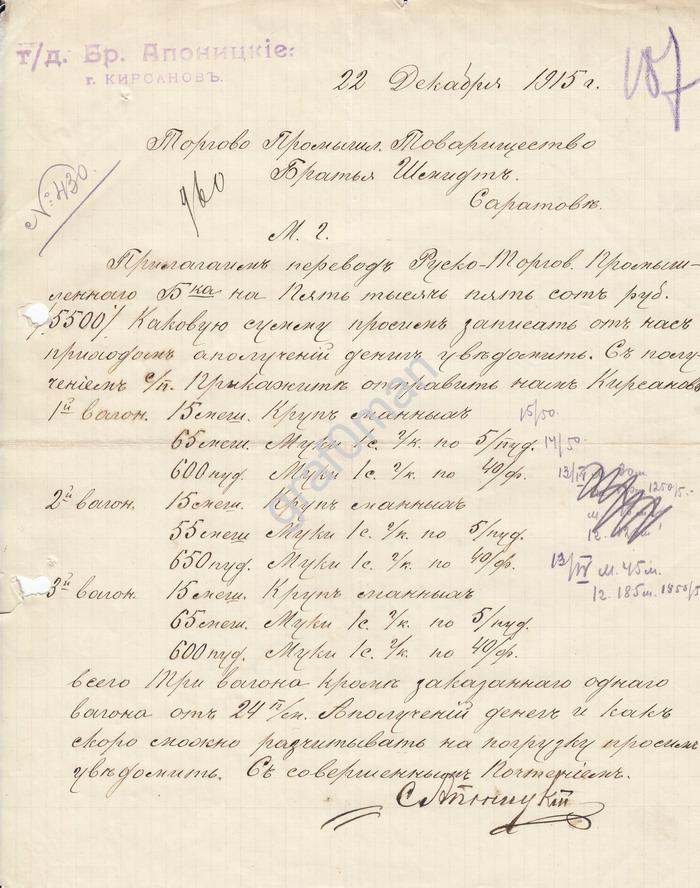 т/д. Бр. Апоницкіе:
г. КИРСАНОВЪ.
107
22 Декабря 1915 г.
Торгово Промышл. Товарищество
Братья Шмидтъ.
№ 430.
960
Саратовъ.
М. Г.
Прилагаемъ переводъ Руско-Торгов. Промыш-
леннаго Бка на Пять тысячъ пять сотъ руб.
/5500/. Каковую сумму просимъ записать отъ насъ
приходомъ аполученій денигъ увѣдомить. Съ полу-
ченіемъ с/п. Прикажитѣ отправить намъ Кирсановъ
1й вагон. 15 меш. Крупъ манныхъ 15/50.
65 меш. Муки 1с. г/к. по 5/пуд. 14/50
600 пуд. Муки 1с. г/к. по 40/ф. 13/IV 1250/5.-
2й вагон. 15 меш. Крупъ манныхъ
55 меш. Муки 1с. г/к. по 5/пуд.
650 пуд. Муки 1с. г/к. по 40/ф. 13/IV м. 45 м.
3й вагон. 15 меш. Крупъ манныхъ 12. 185 м. 1850/5
65 меш. Муки 1с. г/к. по 5/пуд.
600 пуд. Муки 1с. г/к. по 40/ф.
всего три вагона кромѣ заказаннаго однаго
вагона отъ 24 п/м. Аполученій денегъ и какъ
скоро можно разчитывать на погрузку просимъ
увѣдомить. Съ совершеннымъ Почтеніемъ.
С Апоницкій
graf0man